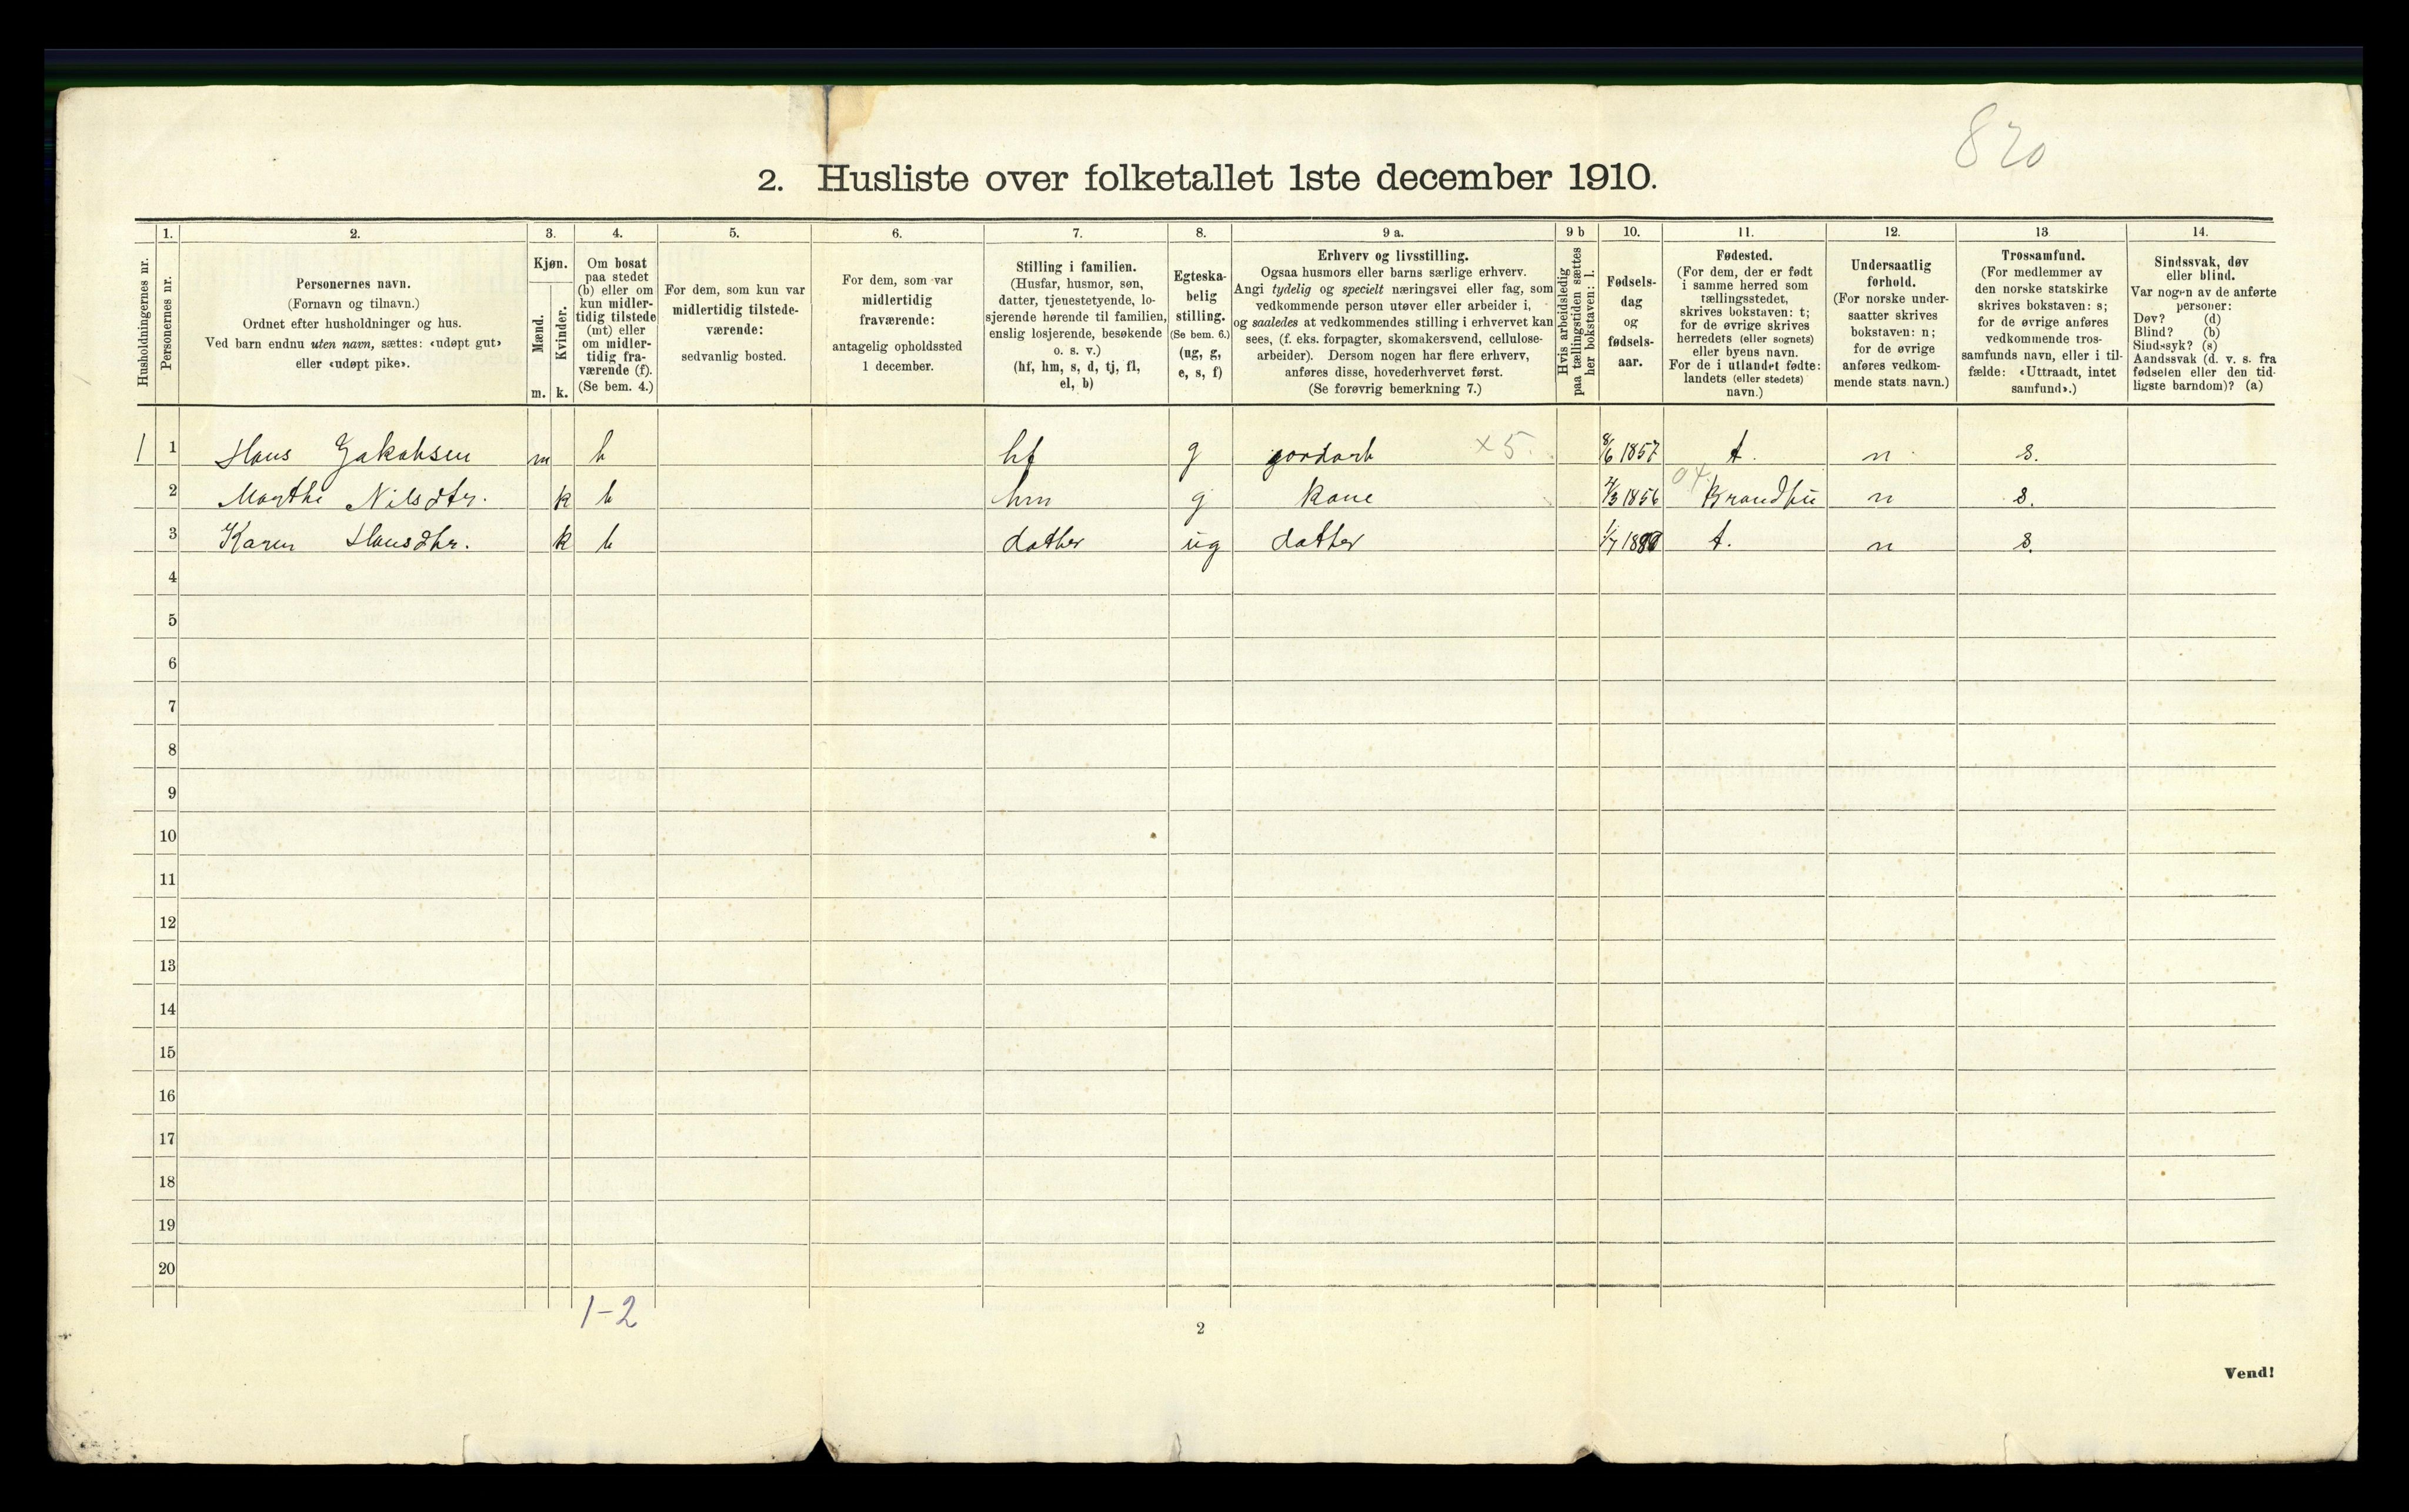 820
2. Husliste over folketallet 1ste december 1910.
Husholdningernes nr.
1.
Personernes nr.
2.
Personernes navn.
(Fornavn og tilnavn.)
Ordnet efter husholdninger og hus.
Ved barn endnu uten navn, sættes: «udøpt gut»
eller «udøpt pike».
3.
Kjøn.
Mænd.
Kvinder.
m. k.
4.
Om bosat
paa stedet
(b) eller om
kun midler-
tidig tilstede
(mt) eller
om midler-
tidig fra-
værende (f).
(Se bem. 4.)
5.
For dem, som kun var
midlertidig tilstede-
værende:
sedvanlig bosted.
6.
For dem, som var
midlertidig
fraværende:
antagelig opholdssted
1 december.
7.
Stilling i familien.
(Husfar, husmor, søn,
datter, tjenestetyende, lo-
sjerende hørende til familien,
enslig losjerende, besøkende
o. s. v.)
(hf, hm, s, d, tj, fl,
el, b)
8.
Egteska-
belig
stilling.
(Se bem. 6.)
(ug, g,
e, s, f)
9 a.
Erhverv og livsstilling.
Ogsaa husmors eller barns særlige erhverv.
Angi tydelig og specielt næringsvei eller fag, som
vedkommende person utøver eller arbeider i,
og saaledes at vedkommendes stilling i erhvervet kan
sees, (f. eks. forpagter, skomakersvend, cellulose-
arbeider). Dersom nogen har flere erhverv,
anføres disse, hovederhvervet først.
(Se forøvrig bemerkning 7.)
9 b
Hvis arbeidsledig
paa tællingstiden sættes
her bokstaven: l.
10.
Fødsels-
dag
og
fødsels-
aar.
11.
Fødested.
(For dem, der er født
i samme herred som
tællingsstedet,
skrives bokstaven: t;
for de øvrige skrives
herredets (eller sognets)
eller byens navn.
For de i utlandet fødte:
landets (eller stedets)
navn.)
12.
Undersaatlig
forhold.
(For norske under-
saatter skrives
bokstaven: n;
for de øvrige
anføres vedkom-
mende stats navn.)
13
Trossamfund.
(For medlemmer av
den norske statskirke
skrives bokstaven: s;
for de øvrige anføres
vedkommende tros-
samfunds navn, eller i til-
fælde: «Uttraadt, intet
samfund».)
14.
Sindssvak, døv
eller blind.
Var nogen av de anførte
personer:
Døv? (d)
Blind? (b)
Sindssyk? (s)
Aandssvak (d. v. s. fra
fødselen eller den tid-
ligste barndom)? (a)
1 1 Hans Jakobsen m b hf g gordarb x5. 8/6 1857 t. n s.
04
2 Marthe Nilsdtr. k b hm g kone 1856 Brandbu n s.
3 Karen Hansdtr. k b datter ug datter 1/7 t. n s.
4
5
6
7
8
9
10
11
12
13
14
15
16
17
18
19
20
1-2
2
Vend!